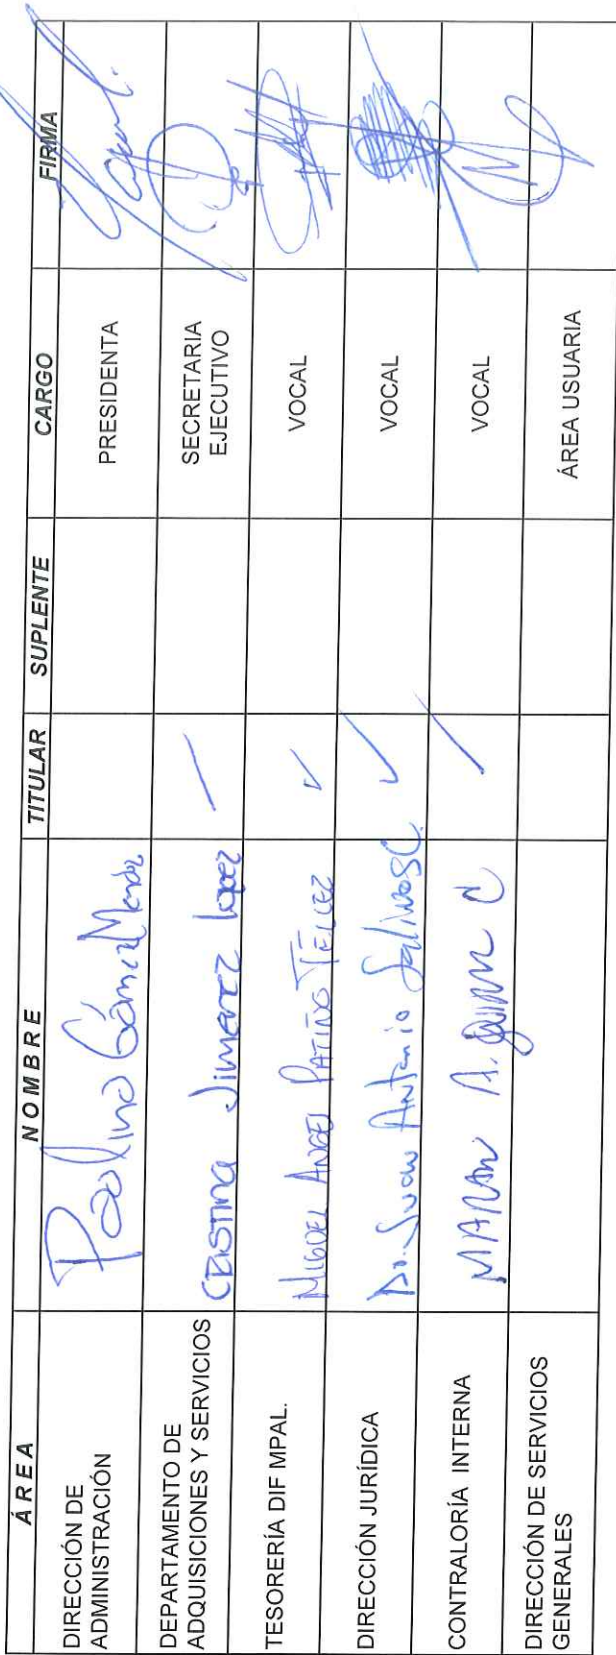 ÁREA NOMBRE TITULAR SUPLENTE CARGO FIRMA
DIRECCIÓN DE
ADMINISTRACIÓN
Paolina Gámez PRESIDENTA
DEPARTAMENTO DE
ADQUISICIONES Y SERVICIOS
Cristina Jimenez Lopez / SECRETARIA
EJECUTIVO
TESORERÍA DIF MPAL. MIGUEL ANGEL PATIÑO TÉLLEZ ✓ VOCAL
DIRECCIÓN JURÍDICA Dr. Juan Antonio Salinas C. ✓ VOCAL
CONTRALORÍA INTERNA A. C / VOCAL
DIRECCIÓN DE SERVICIOS
GENERALES
ÁREA USUARIA